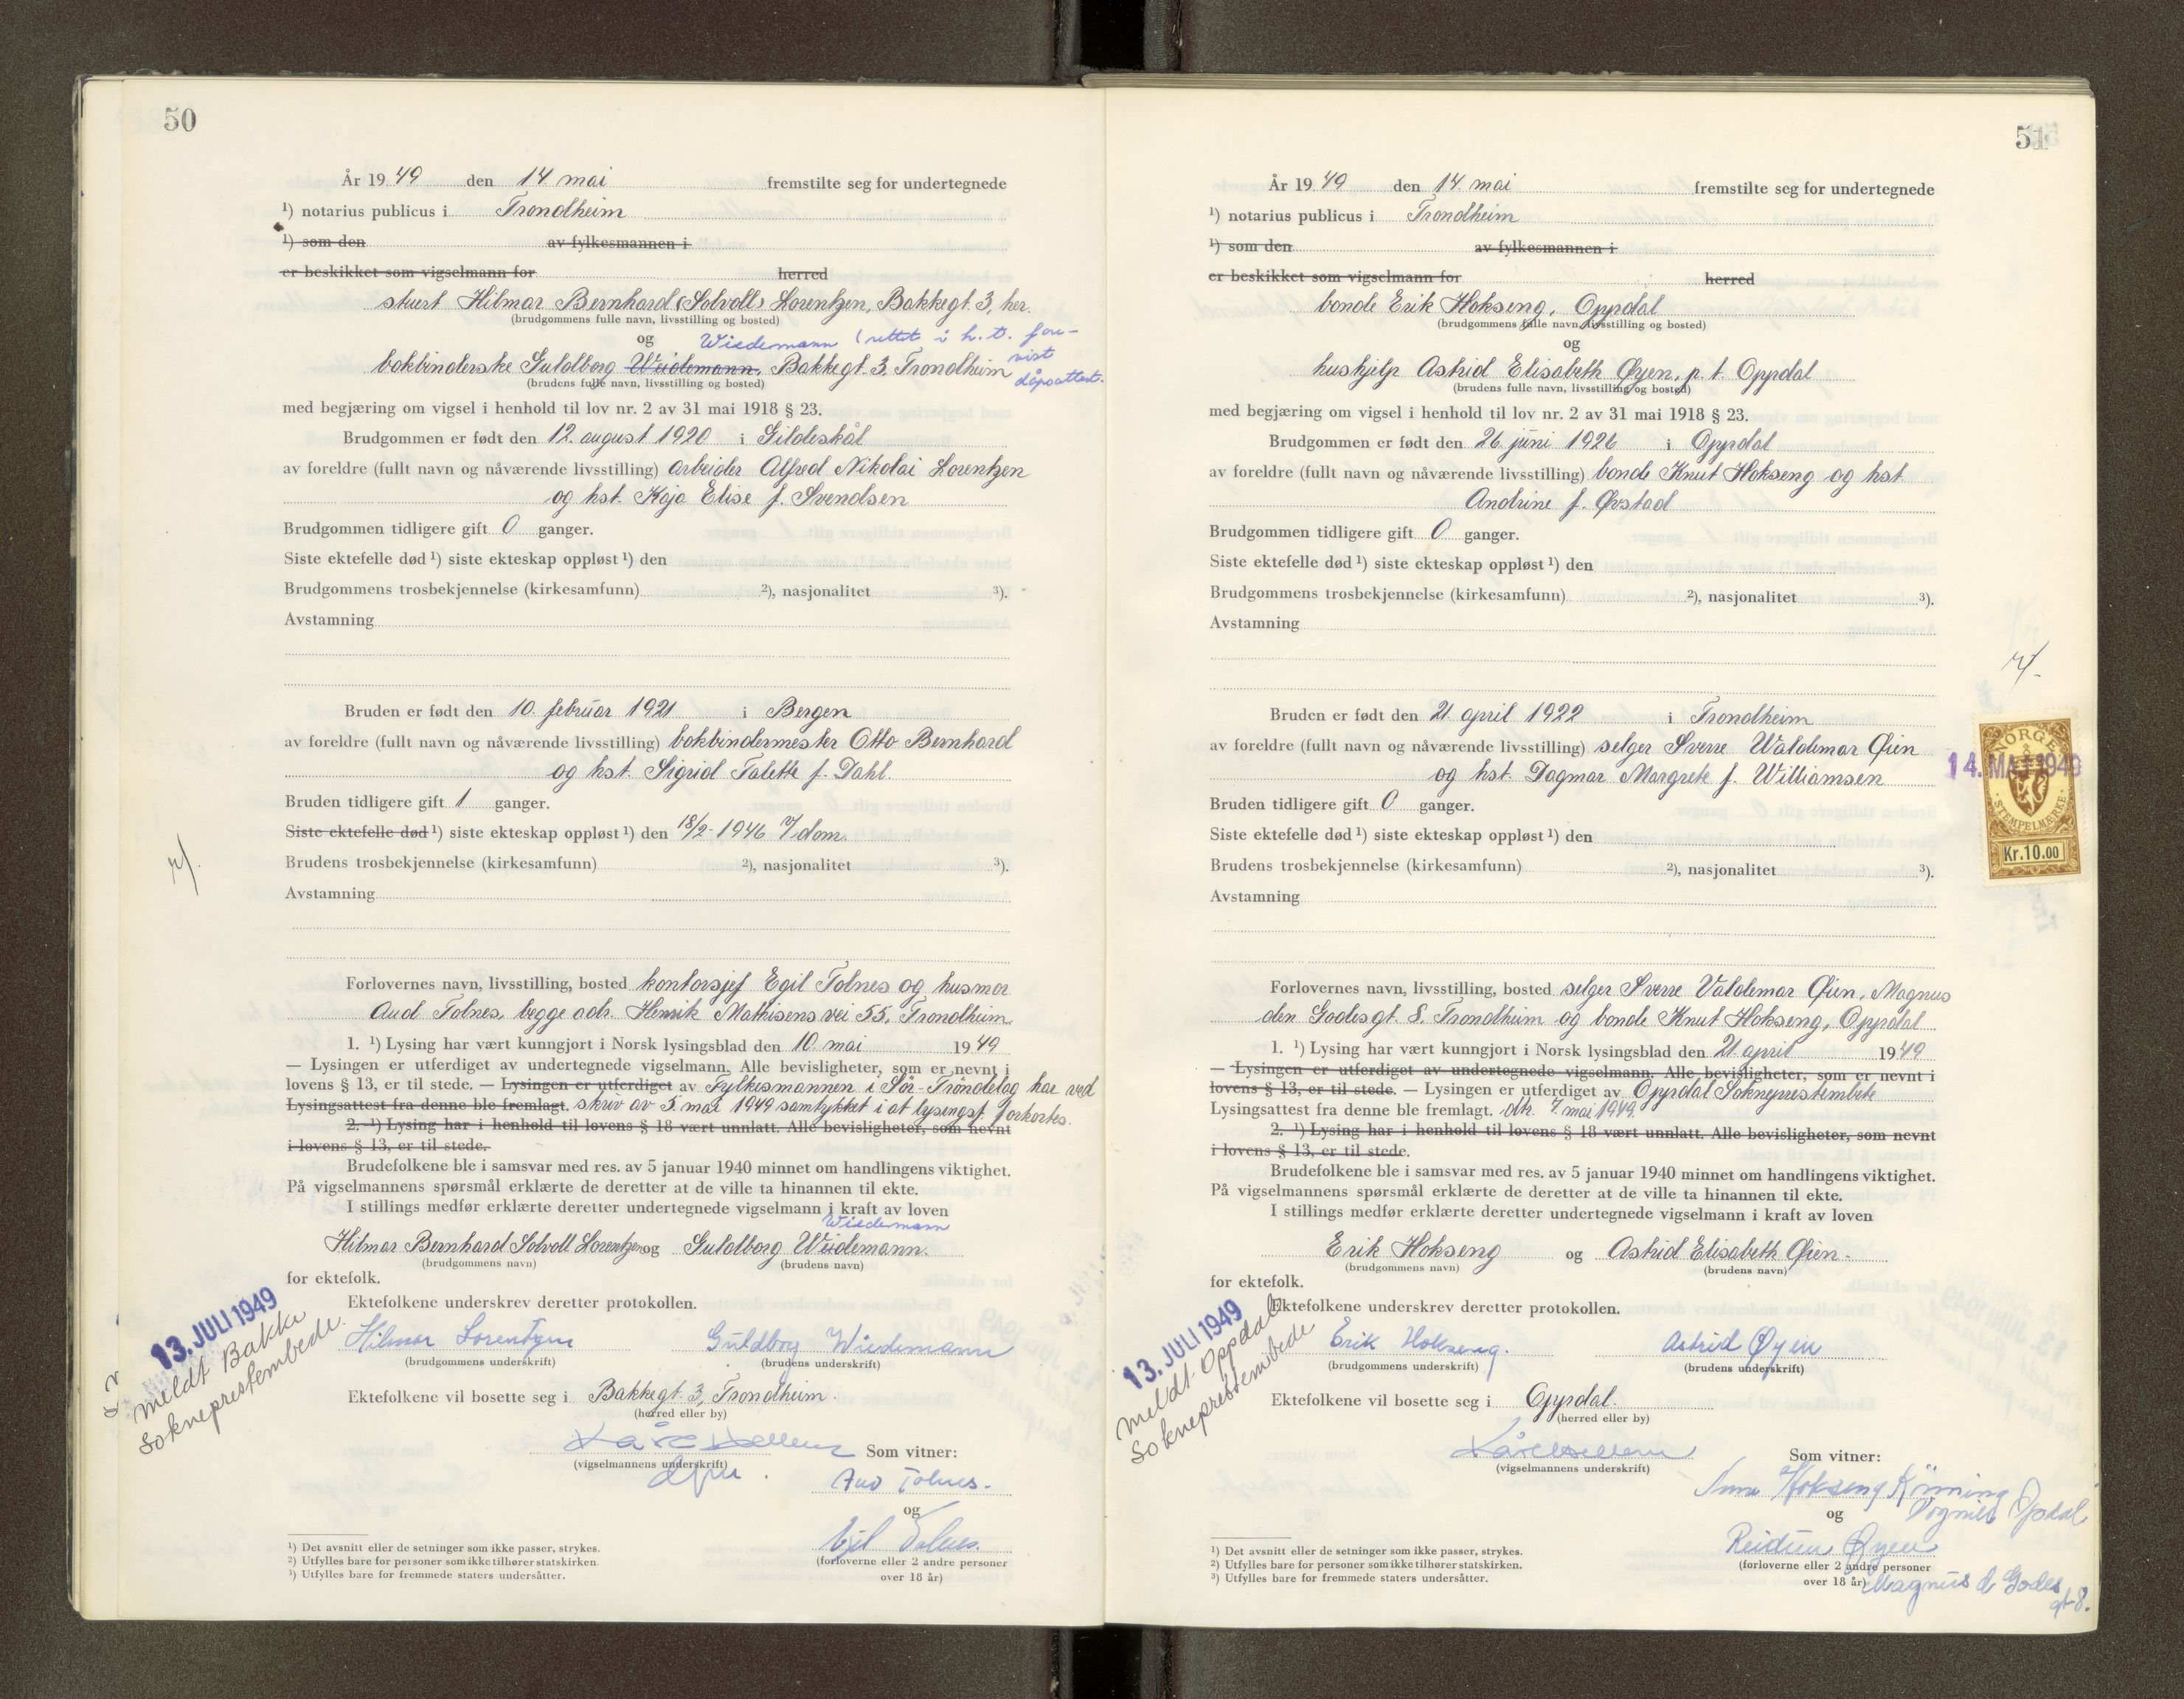 50
År 1949 den 14 mai fremstilte seg for undertegnede
¹) notarius publicus i Trondheim
¹) som den av fylkesmannen i
er beskikket som vigselmann for herred
stuert Hilmar Bernhard (Solvoll) Lorentzen, Bakkegt. 3, her.
(brudgommens fulle navn, livsstilling og bosted)
og Wiedemann (rettet i h. t. fore-
vist
dåpsattest.
bokbinderske Guldborg Weidemann, Bakkegt. 3, Trondheim
(brudens fulle navn, livsstilling og bosted)
med begjæring om vigsel i henhold til lov nr. 2 av 31 mai 1918 § 23.
Brudgommen er født den 12. august 1920 i Gildeskål
av foreldre (fullt navn og nåværende livsstilling) arbeider Alfred Nikolai Lorentzen
og hst. Kaja Elise f. Svendsen
Brudgommen tidligere gift 0 ganger.
Siste ektefelle død ¹) siste ekteskap oppløst ¹) den
Brudgommens trosbekjennelse (kirkesamfunn) ²), nasjonalitet ³).
Avstamning
Bruden er født den 10. februar 1921 i Bergen
av foreldre (fullt navn og nåværende livsstilling) bokbindermester Otto Bernhard
og hst. Sigrid Talette f. Dahl.
Bruden tidligere gift 1 ganger.
Siste ektefelle død ¹) siste ekteskap oppløst ¹) den 18/2- 1946 v/dom.
Brudens trosbekjennelse (kirkesamfunn) ²), nasjonalitet ³).
Avstamning
Forlovernes navn, livsstilling, bosted kontorsjef Egil Tolnes og husmor
Aud Tolnes, begge adr. Henrik Mathisens vei 55, Trondheim.
1. ¹) Lysing har vært kunngjort i Norsk lysingsblad den 10. mai 1949
— Lysingen er utferdiget av undertegnede vigselmann. Alle bevisligheter, som er nevnt i
lovens § 13, er til stede. — Lysingen er utferdiget av Fylkesmannen i Sør-Trøndelag har ved
Lysingsattest fra denne ble fremlagt. skriv av 5. mai 1949 samtykket i at lysingsf. forkortes.
2. ¹) Lysing har i henhold til lovens § 18 vært unnlatt. Alle bevisligheter, som nevnt
i lovens § 13, er til stede.
Brudefolkene ble i samsvar med res. av 5 januar 1940 minnet om handlingens viktighet.
På vigselmannens spørsmål erklærte de deretter at de ville ta hinannen til ekte.
I stillings medfør erklærte deretter undertegnede vigselmann i kraft av loven
Wiedemann
Hilmar Bernhard Solvoll Lorentzen og Guldborg Weidemann.
(brudgommens navn) (brudens navn)
for ektefolk.
Ektefolkene underskrev deretter protokollen.
13. JULI 1949
meldt Bakke
Sokneprestembede.
Hilmar Lorentzen Guldborg Wiedemann
(brudgommens underskrift) (brudens underskrift)
Ektefolkene vil bosette seg i Bakkegt. 3, Trondheim.
(herred eller by)
Som vitner:
(vigselmannens underskrift)
Aud Tolnes.
og
Egil Tolnes.
(forloverne eller 2 andre personer
over 18 år)
¹) Det avsnitt eller de setninger som ikke passer, strykes.
²) Utfylles bare for personer som ikke tilhører statskirken.
³) Utfylles bare for fremmede staters undersåtter.
51
År 1949 den 14. mai fremstilte seg for undertegnede
¹) notarius publicus i Trondheim
¹) som den av fylkesmannen i
er beskikket som vigselmann for herred
bonde Erik Hokseng, Oppdal
(brudgommens fulle navn, livsstilling og bosted)
og
hushjelp Astrid Elisabeth Øyen, p. t. Oppdal
(brudens fulle navn, livsstilling og bosted)
med begjæring om vigsel i henhold til lov nr. 2 av 31 mai 1918 § 23.
Brudgommen er født den 26. juni 1926 i Oppdal
av foreldre (fullt navn og nåværende livsstilling) bonde Knut Hokseng og hst.
Andrine f. Ørstad
Brudgommen tidligere gift 0 ganger.
Siste ektefelle død ¹) siste ekteskap oppløst ¹) den
Brudgommens trosbekjennelse (kirkesamfunn) ²), nasjonalitet ³).
Avstamning
Bruden er født den 21. april 1922 i Trondheim
av foreldre (fullt navn og nåværende livsstilling) selger Sverre Waldemar Øien
og hst. Dagmar Margrete f. Williamsen
14. MAI 1949
NORGE
STEMPELMERKE
Kr.10.00
Bruden tidligere gift 0 ganger.
Siste ektefelle død ¹) siste ekteskap oppløst ¹) den
Brudens trosbekjennelse (kirkesamfunn) ²), nasjonalitet ³).
Avstamning
Forlovernes navn, livsstilling, bosted selger Sverre Valdemar Øien, Magnus
den Godesgt. 8, Trondheim og bonde Knut Hokseng, Oppdal
1. ¹) Lysing har vært kunngjort i Norsk lysingsblad den 21. april 1949
— Lysingen er utferdiget av undertegnede vigselmann. Alle bevisligheter, som er nevnt i
lovens § 13, er til stede. — Lysingen er utferdiget av Oppdal Sokneprestembete
Lysingsattest fra denne ble fremlagt. dtr. 7. mai 1949.
2. ¹) Lysing har i henhold til lovens § 18 vært unnlatt. Alle bevisligheter, som nevnt
i lovens § 13, er til stede.
Brudefolkene ble i samsvar med res. av 5 januar 1940 minnet om handlingens viktighet.
På vigselmannens spørsmål erklærte de deretter at de ville ta hinannen til ekte.
I stillings medfør erklærte deretter undertegnede vigselmann i kraft av loven
Erik Hokseng og Astrid Elisabeth Øien.
(brudgommens navn) (brudens navn)
for ektefolk.
Ektefolkene underskrev deretter protokollen.
13. JULI 1949
meldt Oppdal
Sokneprestembede
Erik Hokseng. Astrid Øyen
(brudgommens underskrift) (brudens underskrift)
Ektefolkene vil bosette seg i Oppdal.
(herred eller by)
Som vitner:
(vigselmannens underskrift)
Hokseng
og
Reidun Øyen
(forloverne eller 2 andre personer
over 18 år) Magnus d Godes
gt 8.
¹) Det avsnitt eller de setninger som ikke passer, strykes.
²) Utfylles bare for personer som ikke tilhører statskirken.
³) Utfylles bare for fremmede staters undersåtter.